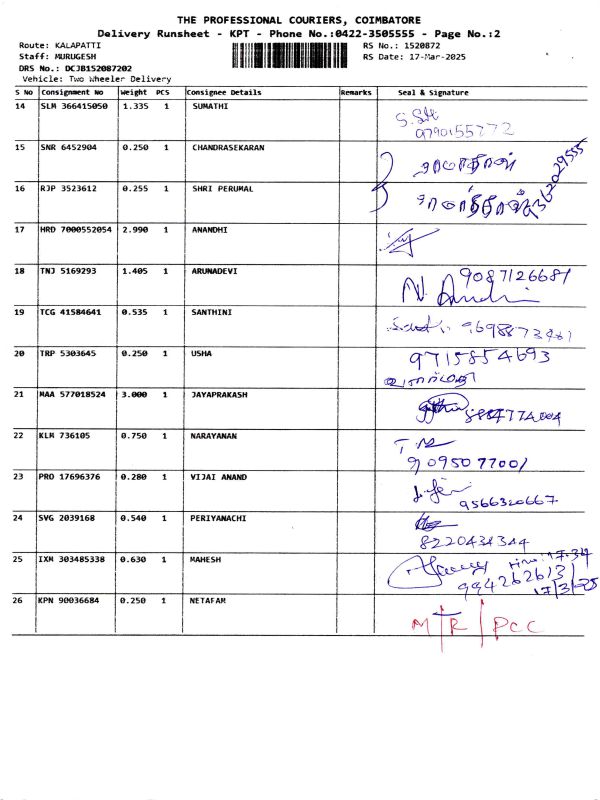 THE PROFESSIONAL COURIERS, COIMBATORE
Delivery Runsheet - KPT - Phone No.:0422-3505555 - Page No.:2
Route: KALAPATTI RS No.: 1520872
Staff: MURUGESH RS Date: 17-Mar-2025
DRS No.: DCJB152087202
Vehicle: Two Wheeler Delivery
S No Consignment No Weight PCS Consignee Details Remarks Seal & Signature
14 SLM 366415050 1.335 1 SUMATHI
9790155772
15 SNR 6452904 0.250 1 CHANDRASEKARAN
16 RJP 3523612 0.255 1 SHRI PERUMAL
17 HRD 7000552054 2.990 1 ANANDHI
18 TNJ 5169293 1.405 1 ARUNADEVI 9087126681
19 TCG 41584641 0.535 1 SANTHINI
20 TRP 5303645 0.250 1 USHA 9715854693
21 MAA 577018524 3.000 1 JAYAPRAKASH
22 KLM 736105 0.750 1 NARAYANAN
9095077001
23 PRO 17696376 0.280 1 VIJAI ANAND
9566320667
24 SVG 2039168 0.540 1 PERIYANACHI
8220434344
25 IXM 303485338 0.630 1 MAHESH
17/3/25
26 KPN 90036684 0.250 1 NETAFAM
MTR/PCC